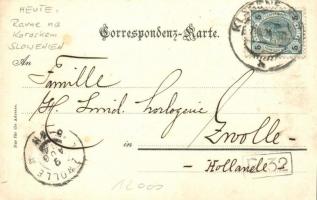 HEUTE:
Ravne na
Koroskem
SLOWENIEN
Correspondenz-Karte.
An
Familie
H. Smid. horlogerie
in Zwolle
Hollande
Nur für die Adresse.
ZWOLLE
12000